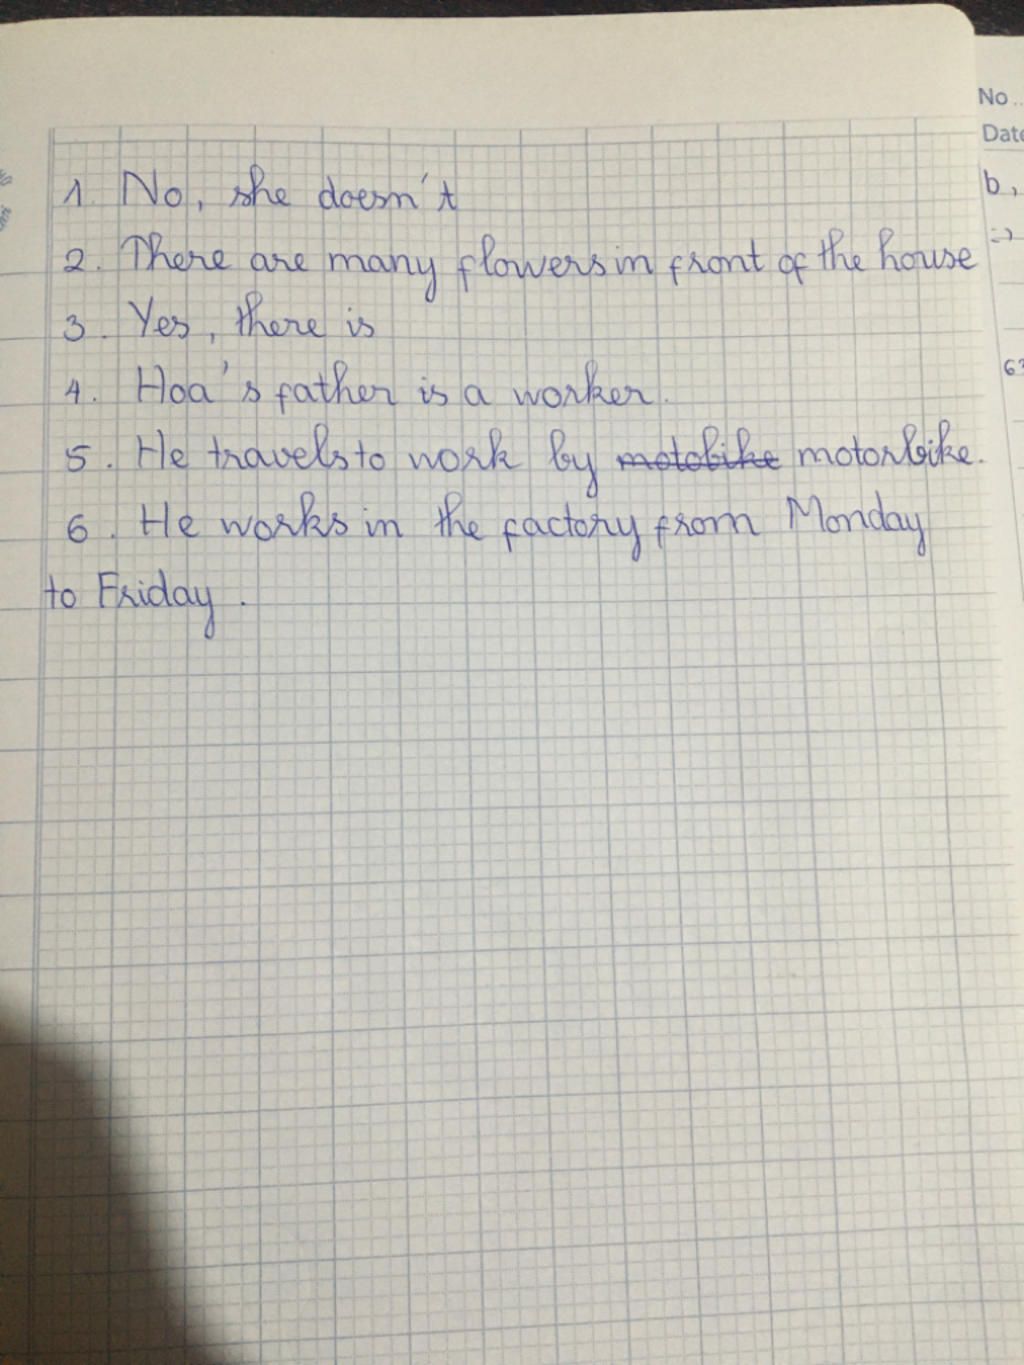 1. No, she doesn't
2. There are many flowers in front of the house
3. Yes, there is
4. Hoa's father is a worker.
5. He travels to work by motobike motorbike.
6. He works in the factory from Monday
to Friday.
No...
Date
b,
=>
63